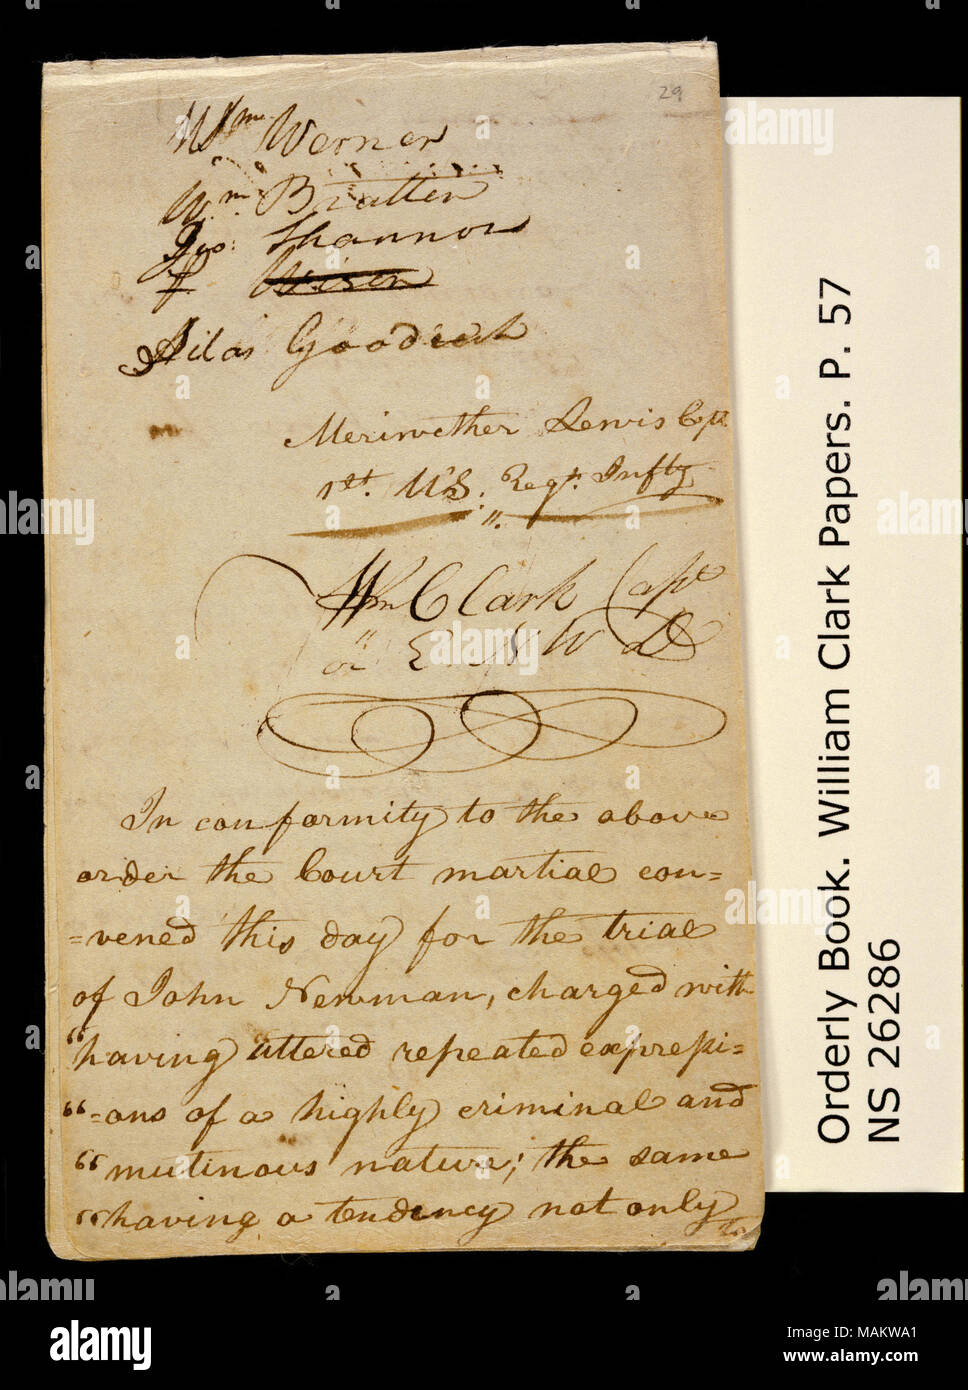 29
Wm Werner
Wm. Bratten
Geo: Shannon
P. Wiser
Silas Goodrich
Meriwether Lewis Capt.
1st. U S. Regt. Infty
Wm Clark Capt
or E N W D
In conformity to the above
order the Court martial con=
=vened this day for the trial
of John Newman, charged with
“having uttered repeated expressi=
“=ons of a highly criminal and
“mutinous nature; the same
“having a tendency not only
to
Orderly Book. William Clark Papers. P. 57
NS 26286
a
alamy
Image ID: MAKWA1
www.alamy.com